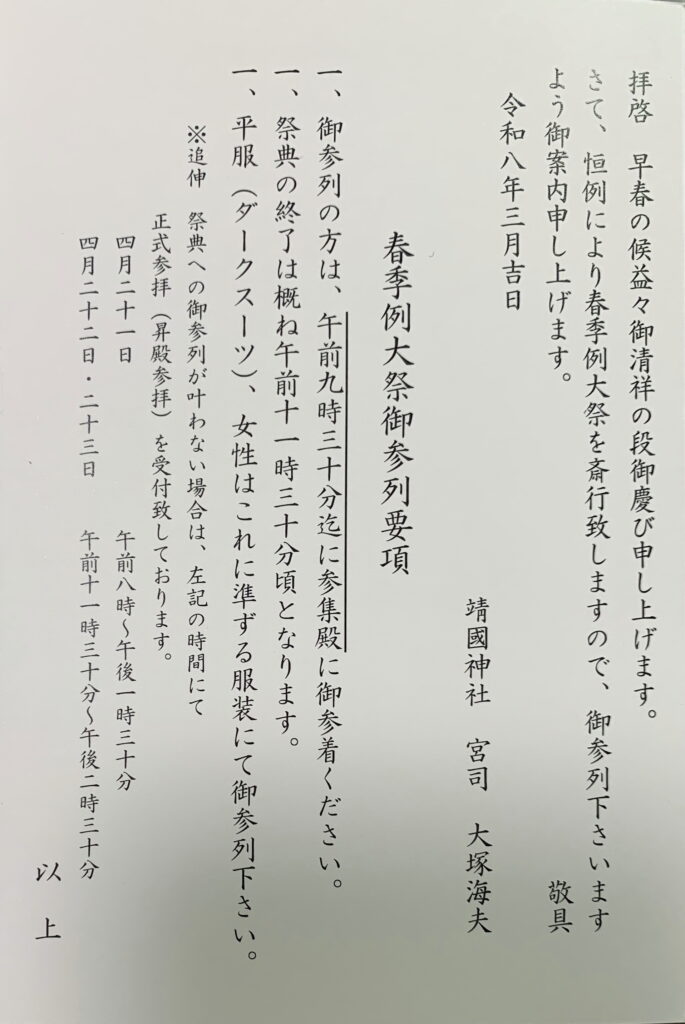 拝啓　早春の候益々御清祥の段御慶び申し上げます。
さて、恒例により春季例大祭を斎行致しますので、御参列下さいます
よう御案内申し上げます。　敬具
令和八年三月吉日
靖國神社　宮司　大塚海夫
春季例大祭御参列要項
一、御参列の方は、午前九時三十分迄に参集殿に御参着ください。
一、祭典の終了は概ね午前十一時三十分頃となります。
一、平服（ダークスーツ）、女性はこれに準ずる服装にて御参列下さい。
※追伸　祭典への御参列が叶わない場合は、左記の時間にて
正式参拝（昇殿参拝）を受付致しております。
四月二十一日　午前八時～午後一時三十分
四月二十二日・二十三日　午前十一時三十分～午後二時三十分
以上